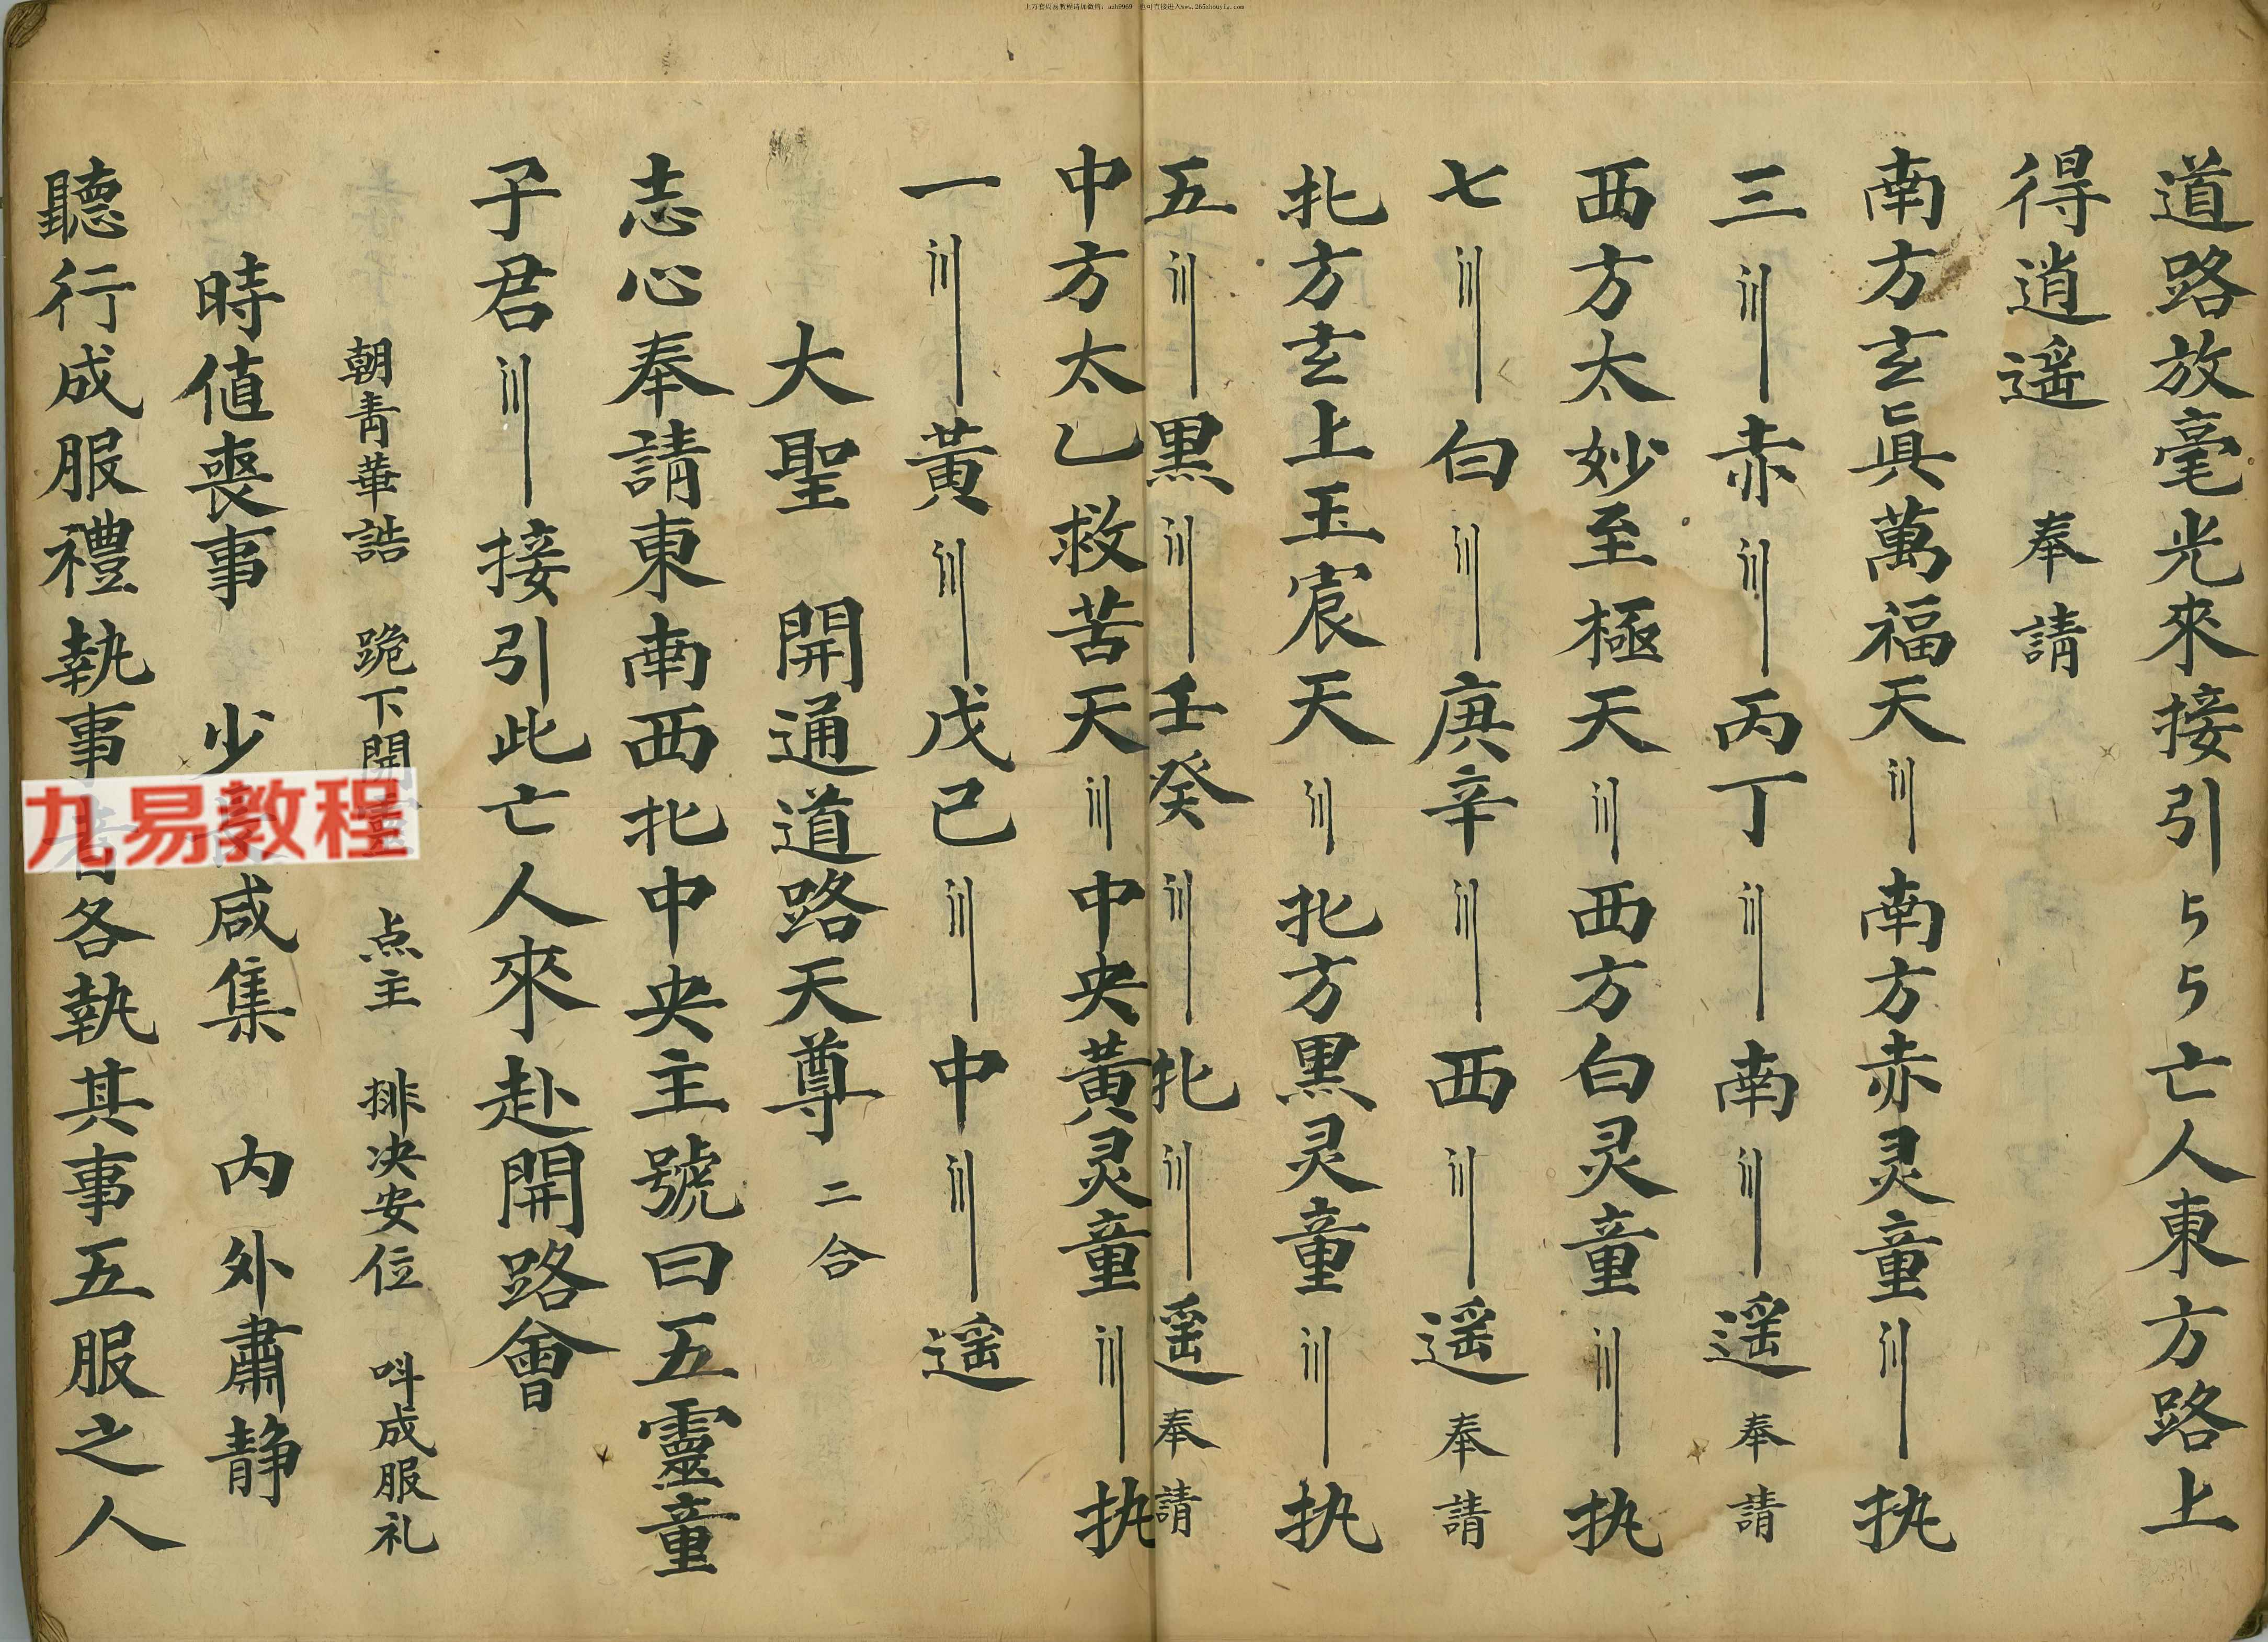 上万套周易教程请加微信：auh9969 也可直接进入www.265zhouyiw.com
道路放毫光來接引㇉㇉亡人東方路上
得逍遥 奉請
南方玄眞萬福天〣南方赤灵童〣执
三〣赤〣丙丁〣南〣遥 奉請
西方太妙至極天〣西方白灵童〣执
七〣白〣庚辛〣西〣遥 奉請
北方玄上玉宸天〣北方黑灵童〣执
五〣黑〣壬癸〣北〣遥 奉請
中方太乙救苦天〣中央黃灵童〣执
一〣黄〣戊己〣中〣遥
大聖 開通道路天尊 二合
志心奉請東南西北中央主號曰五靈童
子君〣接引此亡人來赴開路會
朝青華誥 跪下開 点主 排决安位 呌成服礼
時值喪事 少 咸集 内外肅静
聽行成服禮執事者各執其事五服之人
九易教程